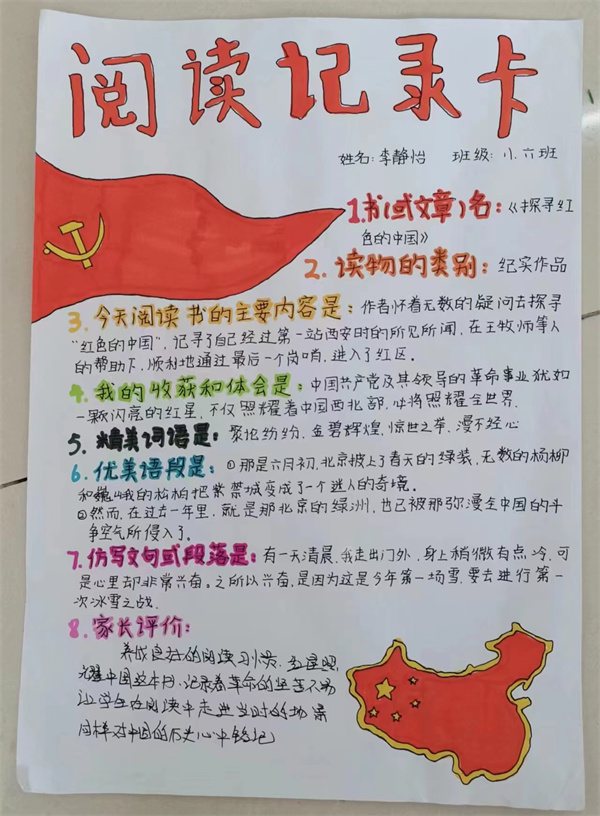 阅读记录卡
姓名:李静怡 班级:小.六班
1.书(或文章)名:《探寻红
色的中国》
2.读物的类别:纪实作品
3.今天阅读书的主要内容是:作者怀着无数的疑问去探寻
"红色的中国",记寻了自己经过第一站西安时的所见所闻,在王牧师等人
的帮助下,顺利地通过最后一个岗哨,进入了红区.
4.我的收获和体会是:中国共产党及其领导的革命事业犹如
一颗闪亮的红星,不仅照耀着中国西北部,必将照耀全世界.
5.精美词语是:聚论纷纷,金碧辉煌,惊世之举,漫不经心
6.优美语段是:①那是六月初,北京披上了春天的绿装,无数的杨柳
和巍峨的松柏把紫禁城变成了一个迷人的奇境.
②然而,在过去一年里,就是那北京的绿洲,也已被那弥漫全中国的斗
争空气所侵入了.
7.仿写文句或段落是:有一天清晨,我走出门外,身上稍微有点冷,可
是心里却非常兴奋。之所以兴奋,是因为这是今年第一场雪,要去进行第一
次冰雪之战.
8.家长评价:
养成良好的阅读习惯.红星照
耀中国这本书,记录着革命的坚苦不易
让学生在阅读中走进当时的场景
同样对中国的历史心中铭记